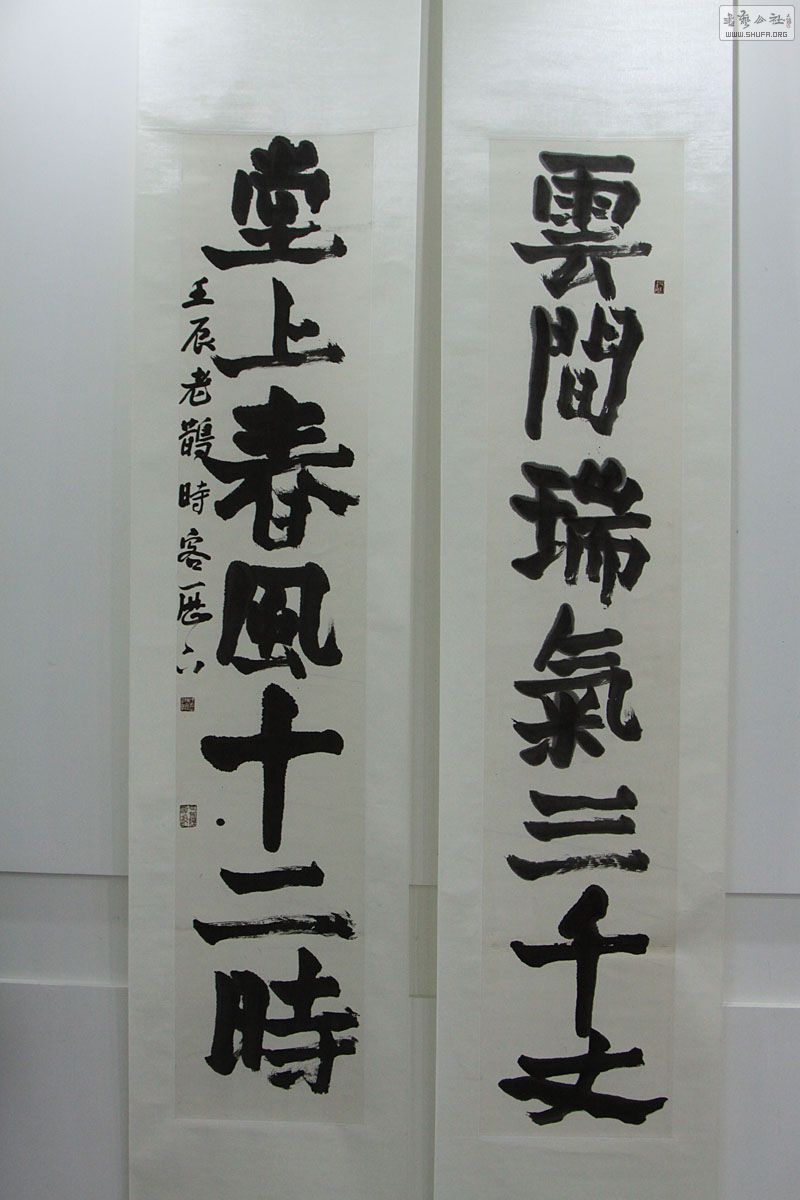 雲間瑞氣三千丈
堂上春風十二時
壬辰老鵲時客歷下
WWW.SHUFA.ORG